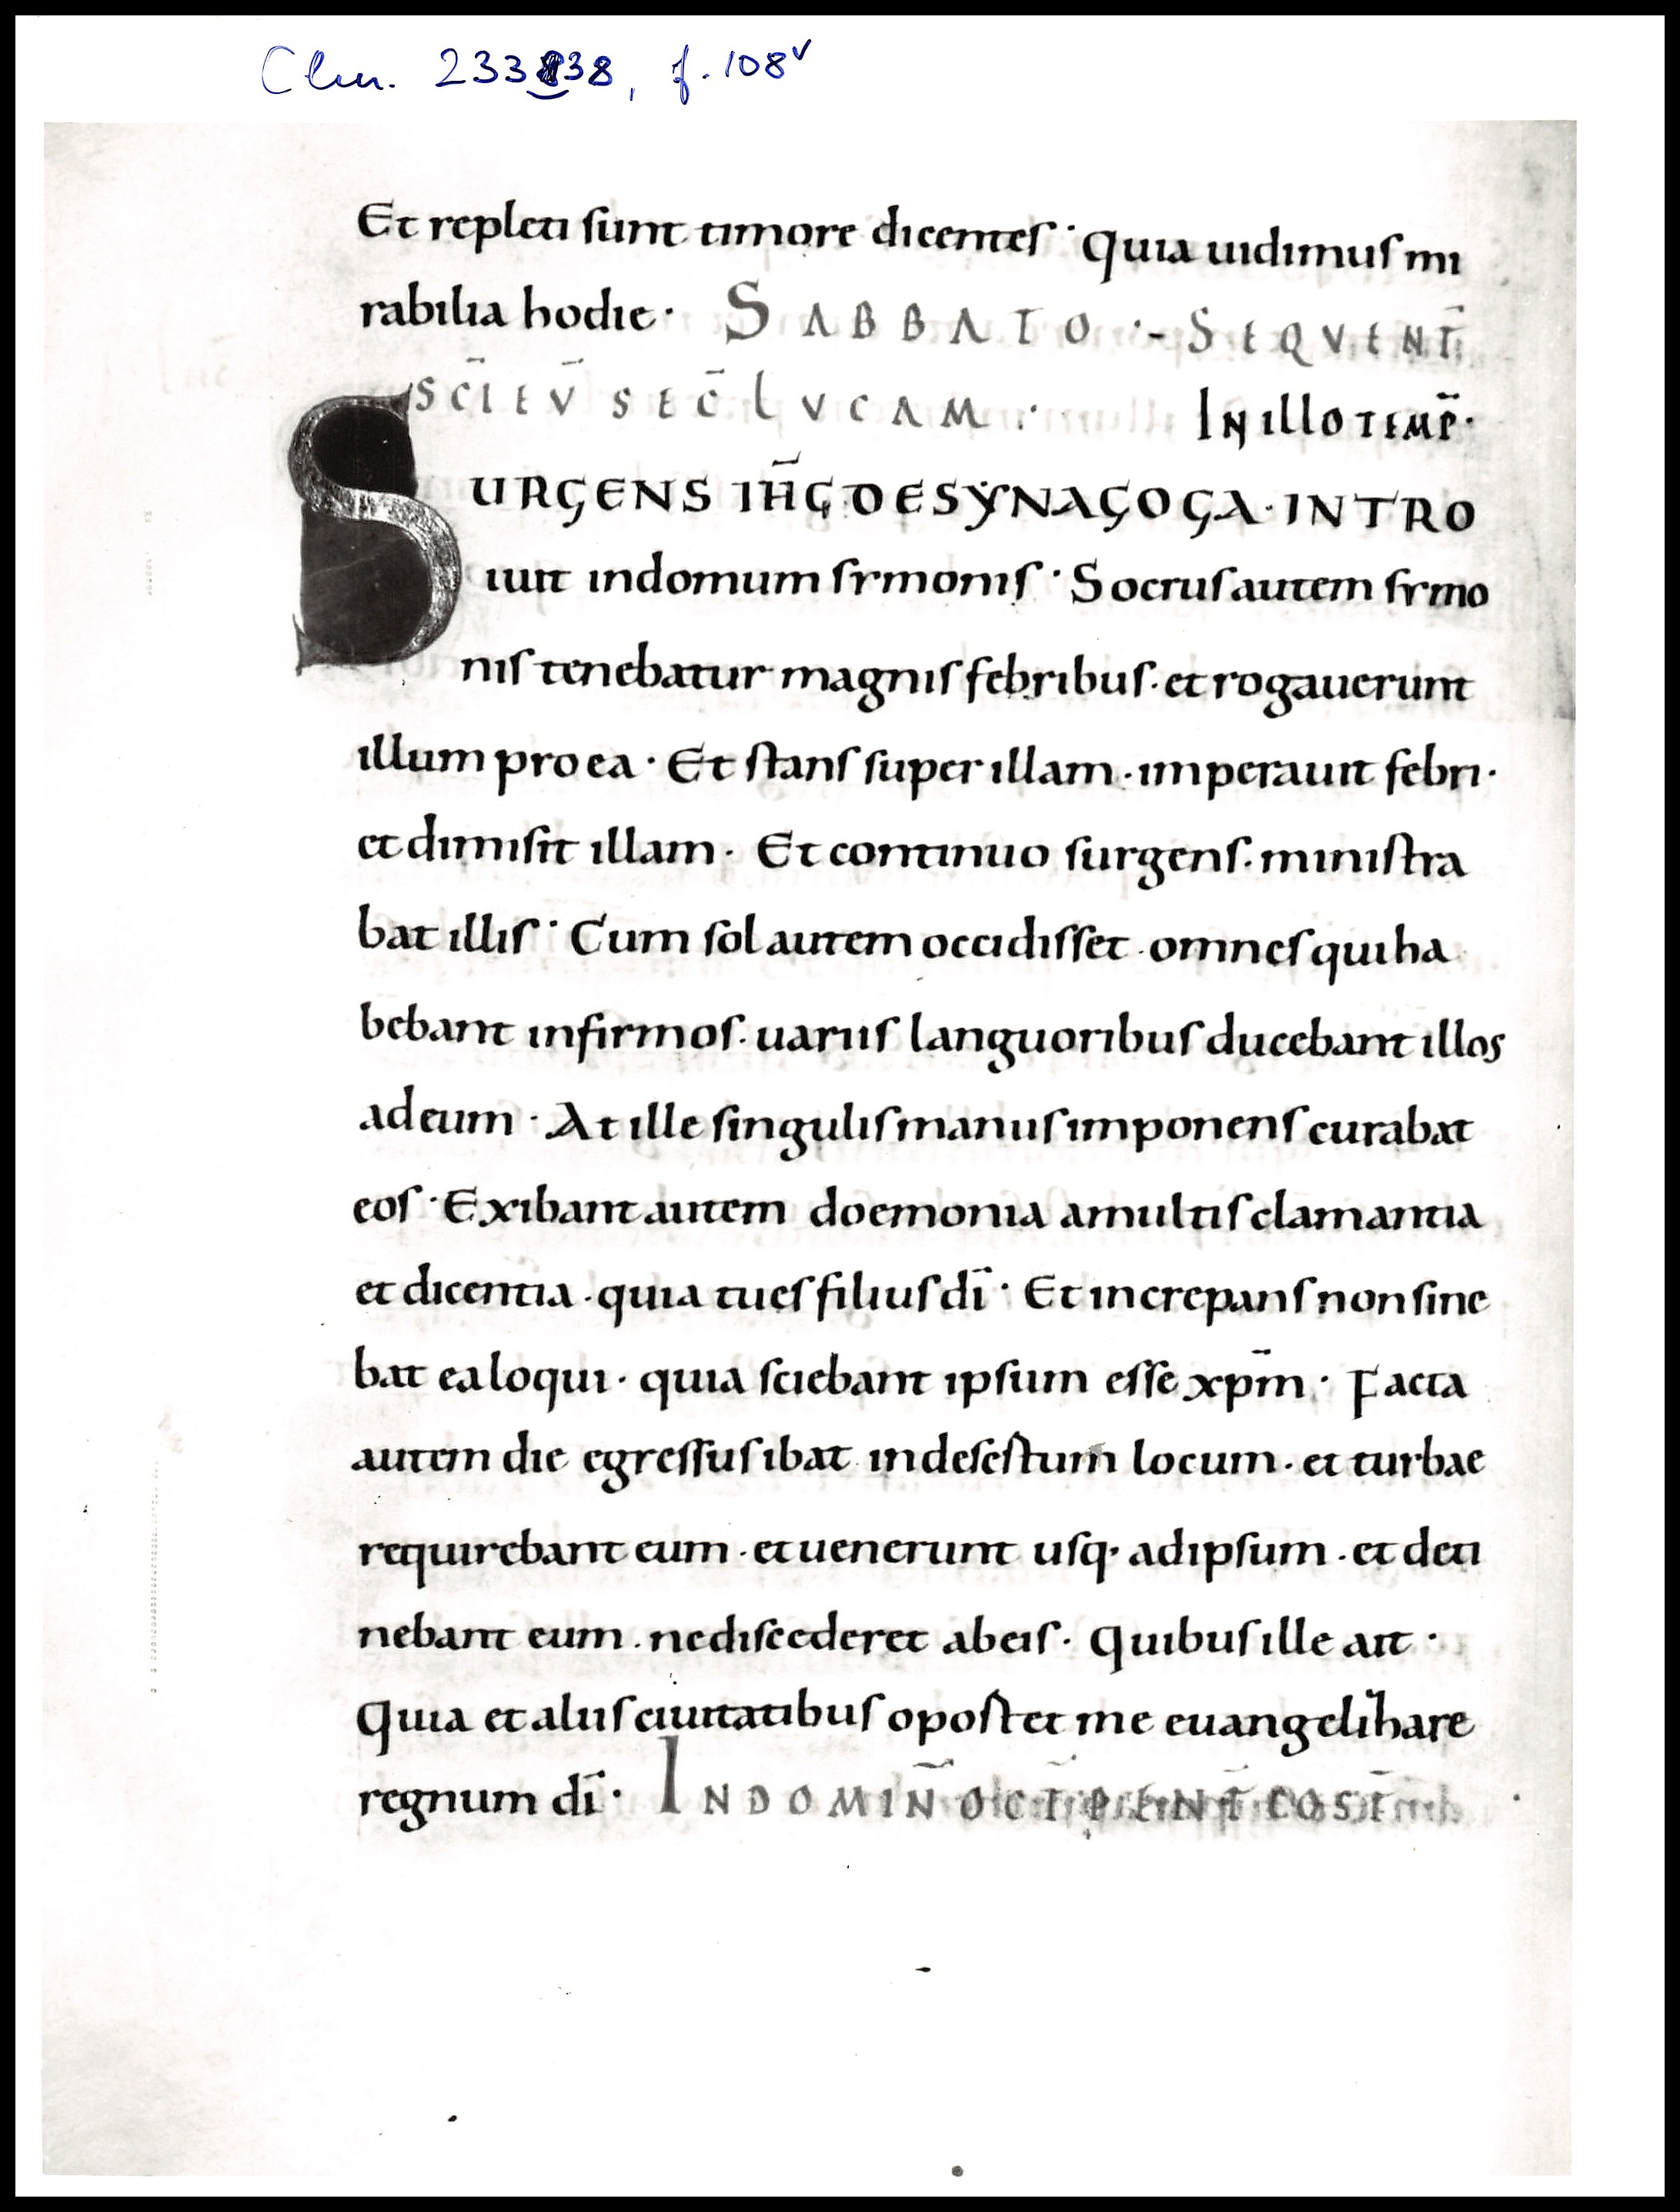 Clm. 23338, f. 108v
Et repleti sunt timore dicentes · Quia uidimus mi
rabilia hodie · SABBATO ·- SEQVENT̄
SC̄I EV̄ SEC̄ LVCAM · IN illo TEMP̄ ·
SURGENS IH̄C DE SẎNAGOGA · INTRO
iuit in domum symonis · Socrus autem symo
nis tenebatur magnis febribus · et rogauerunt
illum pro ea · Et stans super illam · imperauit febri ·
et dimisit illam · Et continuo surgens · ministra
bat illis · Cum sol autem occidisset · omnes qui ha
bebant infirmos · uariis languoribus ducebant illos
ad eum · At ille singulis manus imponens curabat
eos · Exibant autem doemonia a multis clamantia
et dicentia · quia tu es filius dī · Et increpans non sine
bat ea loqui · quia sciebant ipsum esse xpm̄ · Facta
autem die egressus ibat in desertum locum · et turbae
requirebant eum · et uenerunt usq· ad ipsum · et deti
nebant eum · ne discederet ab eis · Quibus ille ait ·
Quia et aliis ciuitatibus oportet me euangelizare
regnum dī · IN DOMIN̄ OCT̄ PENT̄ECOST̄